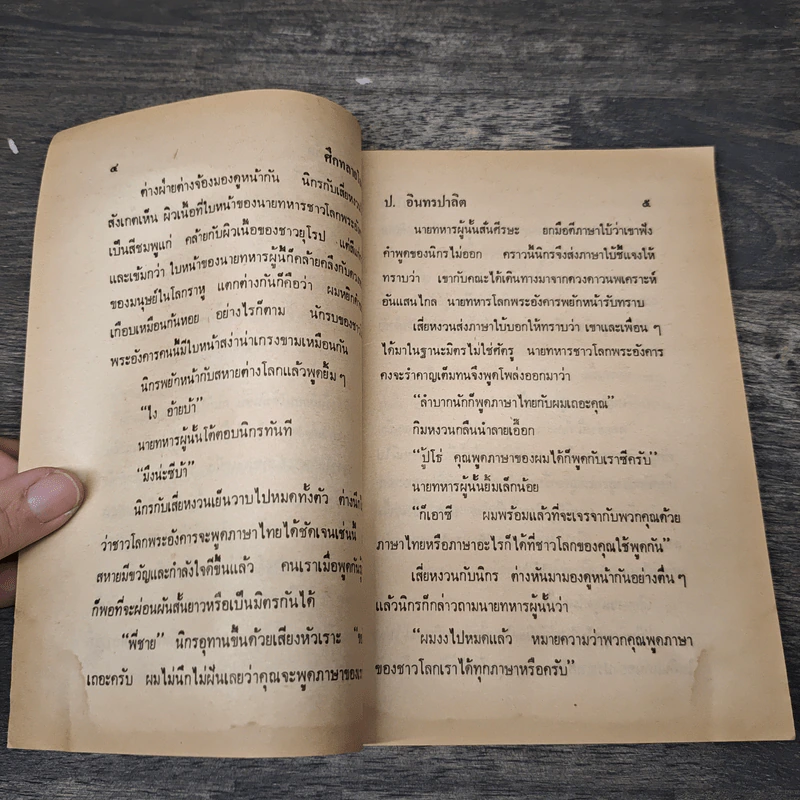 ๔ ศึกกลาย
ต่างฝ่ายต่างจ้องมองดูหน้ากัน นิกรกับเสี่ยหงวน
สังเกตเห็น ผิวเนื้อที่ใบหน้าของนายทหารชาวโลกพระอัง
เป็นสีชมพูแก่ คล้ายกับผิวเนื้อของชาวยุโรป แต่สีแก่
และเข้มกว่า ใบหน้าของนายทหารผู้นี้ก็คล้ายคลึงกับดวง
ของมนุษย์ในโลกราหู แตกต่างกันก็คือว่า ผมหยิก
เกือบเหมือนก้นหอย อย่างไรก็ตาม นักรบของชาว
พระอังคารคนนี้มีใบหน้าสง่าน่าเกรงขามเหมือนกัน
นิกรพยักหน้ากับสหายต่างโลกแล้วพูดยิ้ม ๆ
“ไง อ้ายบ้า”
นายทหารผู้นั้นโต้ตอบนิกรทันที
“มึงน่ะซีบ้า”
นิกรกับเสี่ยหงวนเย็นวาบไปหมดทั้งตัว ต่างนึก
ว่าชาวโลกพระอังคารจะพูดภาษาไทยได้ชัดเจนเช่นนี้
สหายมีขวัญและกำลังใจดีขึ้นแล้ว คนเราเมื่อพูดกัน
ก็พอที่จะผ่อนผันสั้นยาวหรือเป็นมิตรกันได้
“พี่ชาย” นิกรอุทานขึ้นด้วยเสียงหัวเราะ
เถอะครับ ผมไม่นึกไม่ฝันเลยว่าคุณจะพูดภาษาของ
ป. อินทรปาลิต ๕
นายทหารผู้นั้นสั่นศีรษะ ยกมือตีภาษาใบ้ว่าเขาฟัง
คำพูดของนิกรไม่ออก คราวนี้นิกรจึงส่งภาษาใบ้ชี้แจงให้
ทราบว่า เขากับคณะได้เดินทางมาจากดวงดาวนพเคราะห์
อันแสนไกล นายทหารโลกพระอังคารพยักหน้ารับทราบ
เสี่ยหงวนส่งภาษาใบ้บอกให้ทราบว่า เขาและเพื่อน ๆ
ได้มาในฐานะมิตรไม่ใช่ศัตรู นายทหารชาวโลกพระอังคาร
คงจะรำคาญเต็มทนจึงพูดโพล่งออกมาว่า
“ลำบากนักก็พูดภาษาไทยกับผมเถอะคุณ”
กิมหงวนกลืนน้ำลายเอื๊อก
“ปู้โธ่ คุณพูดภาษาของผมได้ก็พูดกับเราซีครับ”
นายทหารผู้นั้นยิ้มเล็กน้อย
“ก็เอาซี ผมพร้อมแล้วที่จะเจรจากับพวกคุณด้วย
ภาษาไทยหรือภาษาอะไรก็ได้ที่ชาวโลกของคุณใช้พูดกัน”
เสี่ยหงวนกับนิกร ต่างหันมามองดูหน้ากันอย่างตื่น ๆ
แล้วนิกรก็กล่าวถามนายทหารผู้นั้นว่า
“ผมงงไปหมดแล้ว หมายความว่าพวกคุณพูดภาษา
ของชาวโลกเราได้ทุกภาษาหรือครับ”